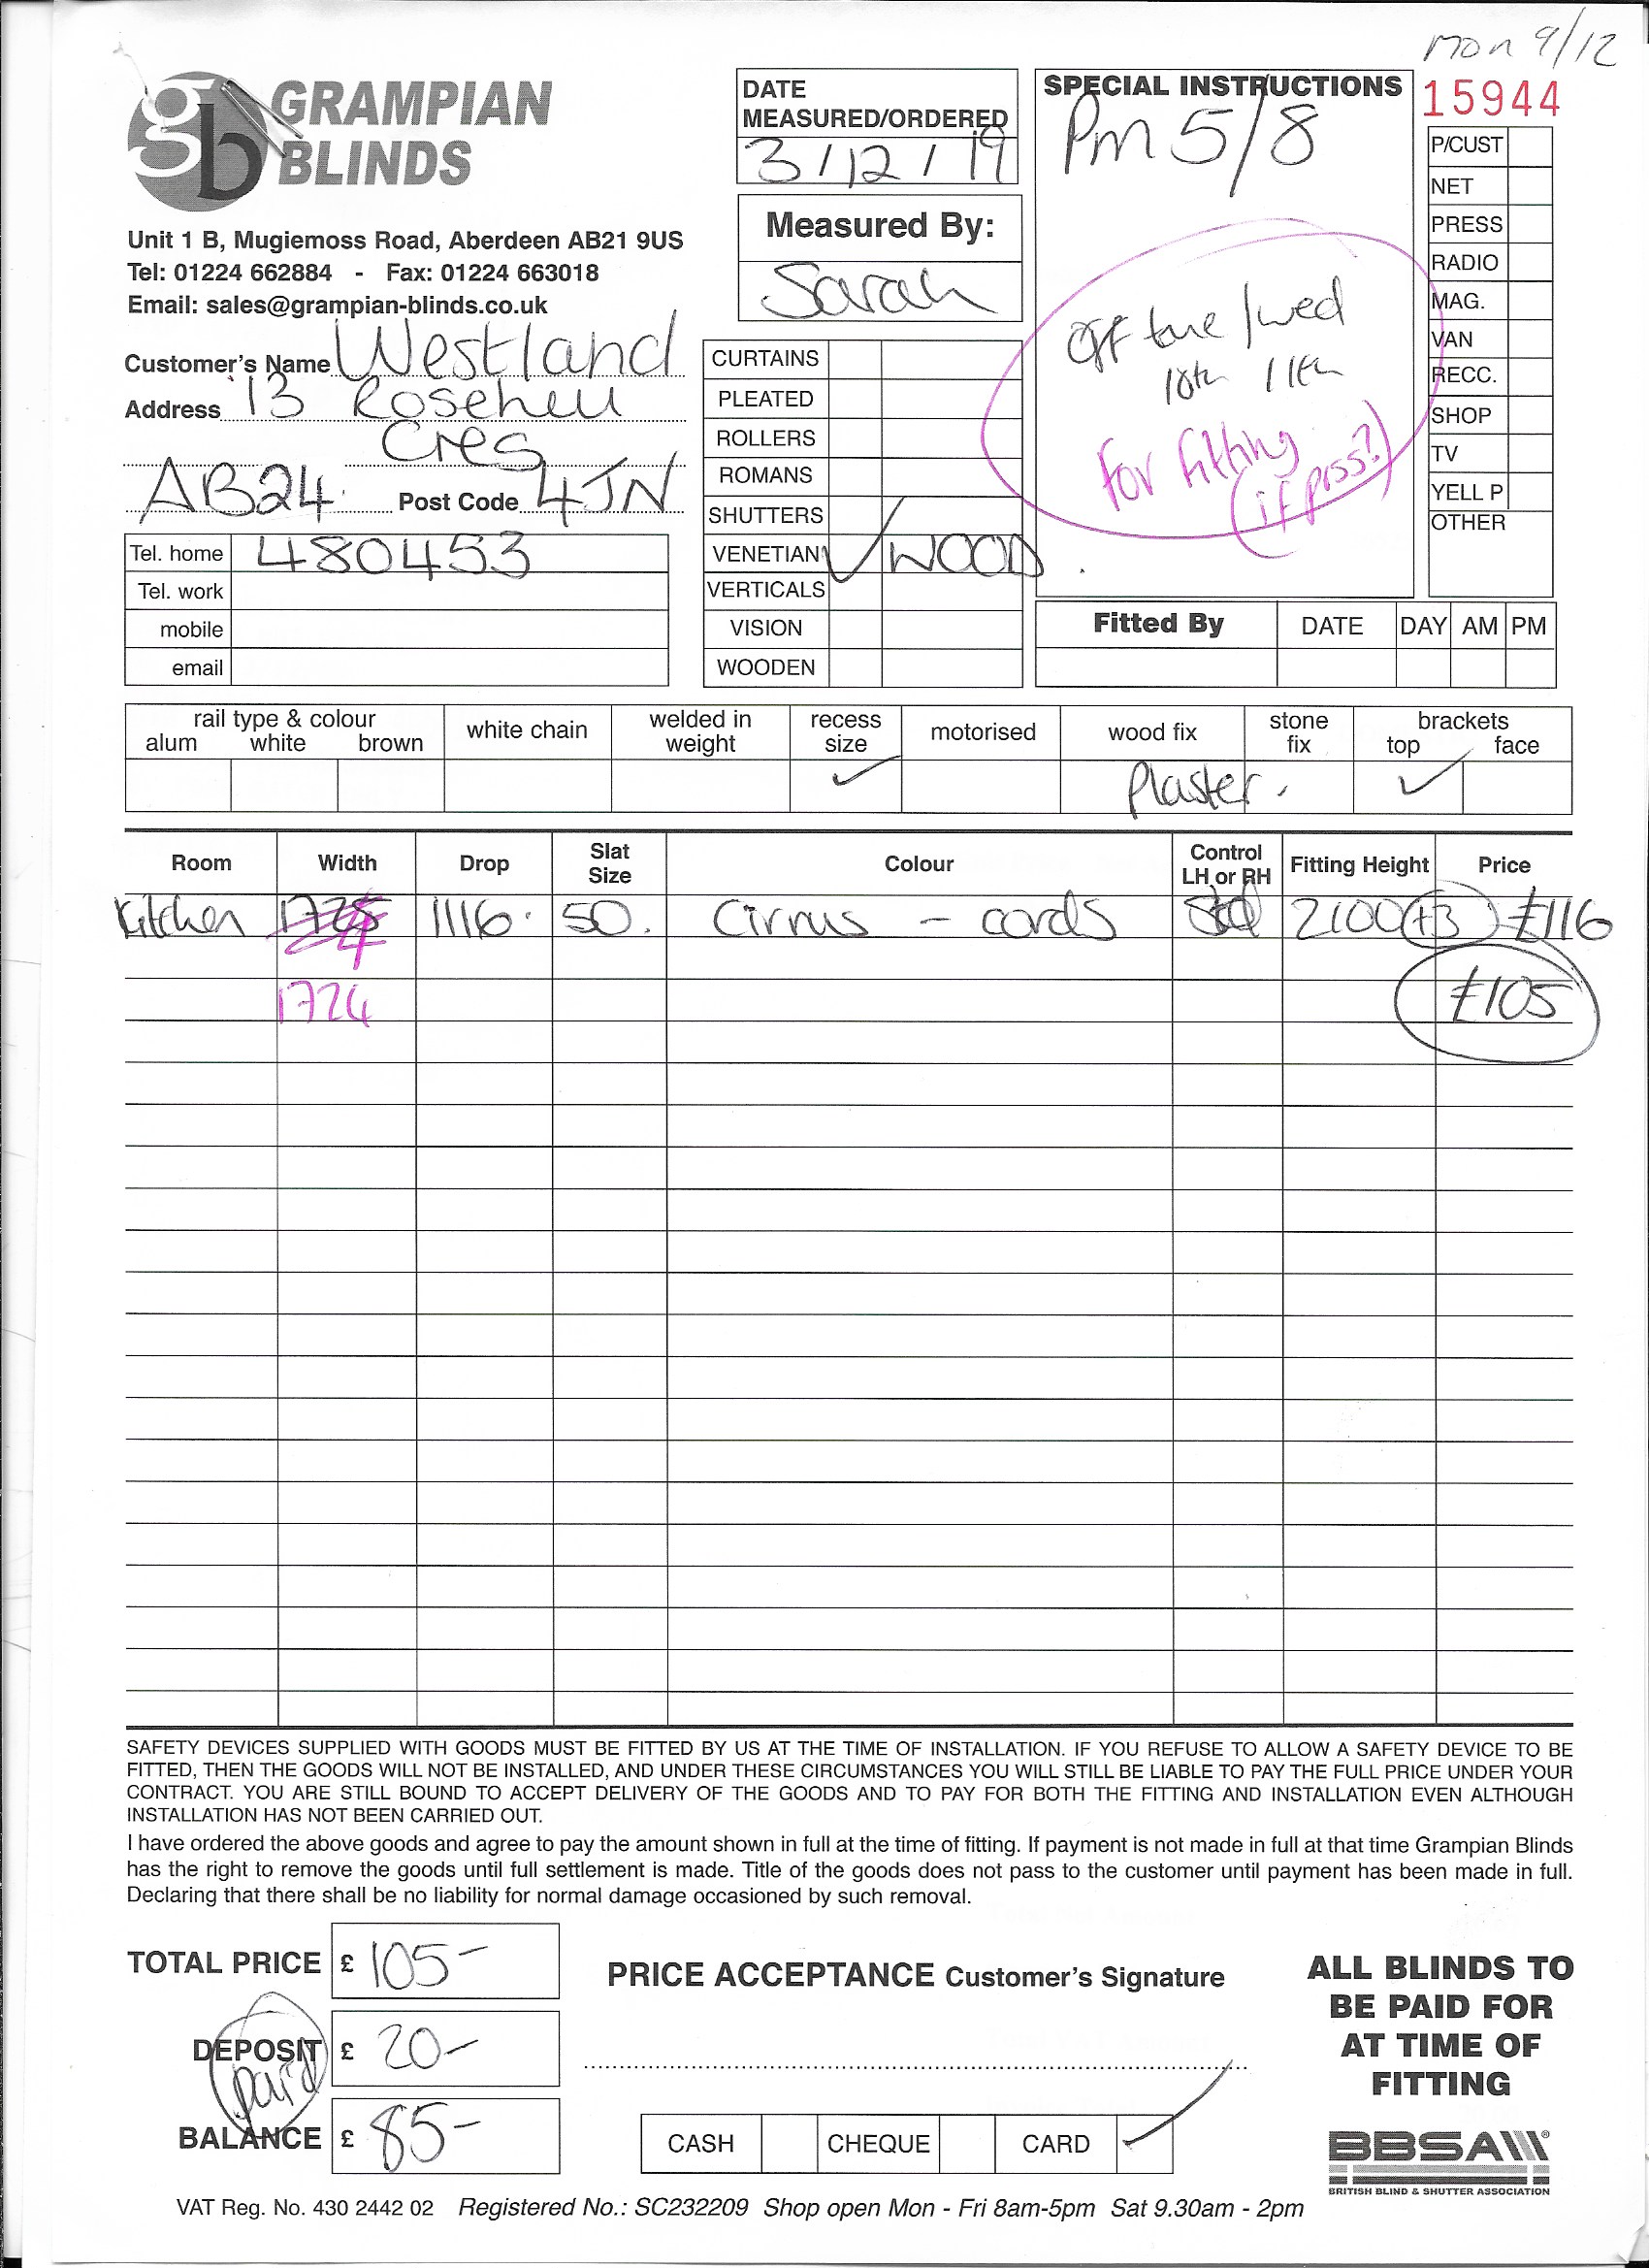 mon 9/12
gb GRAMPIAN
BLINDS
Unit 1 B, Mugiemoss Road, Aberdeen AB21 9US
Tel: 01224 662884 - Fax: 01224 663018
Email: sales@grampian-blinds.co.uk
Customer's Name Westland
Address 13 Rosehill
Cres
AB24 Post Code 4JN
Tel. home 480453
Tel. work
mobile
email
DATE
MEASURED/ORDERED
3/12/19
Measured By:
Sarah
CURTAINS
PLEATED
ROLLERS
ROMANS
SHUTTERS
VENETIAN ✓ WOOD.
VERTICALS
VISION
WOODEN
SPECIAL INSTRUCTIONS
Pm 5/8
Off tue/wed
10th 11th
For fitting
(if poss?)
15944
P/CUST
NET
PRESS
RADIO
MAG.
VAN
RECC.
SHOP
TV
YELL P
OTHER
Fitted By DATE DAY AM PM
rail type & colour
alum white brown
white chain
welded in
weight
recess
size
✓
motorised
wood fix
Plaster.
stone
fix
brackets
top face
✓
Room Width Drop Slat Size Colour Control LH or RH Fitting Height Price
Kitchen 1725 1116. 50. Cirrus - cords Std 2100 (+3) £116
4
1724 £105
SAFETY DEVICES SUPPLIED WITH GOODS MUST BE FITTED BY US AT THE TIME OF INSTALLATION. IF YOU REFUSE TO ALLOW A SAFETY DEVICE TO BE
FITTED, THEN THE GOODS WILL NOT BE INSTALLED, AND UNDER THESE CIRCUMSTANCES YOU WILL STILL BE LIABLE TO PAY THE FULL PRICE UNDER YOUR
CONTRACT. YOU ARE STILL BOUND TO ACCEPT DELIVERY OF THE GOODS AND TO PAY FOR BOTH THE FITTING AND INSTALLATION EVEN ALTHOUGH
INSTALLATION HAS NOT BEEN CARRIED OUT.
I have ordered the above goods and agree to pay the amount shown in full at the time of fitting. If payment is not made in full at that time Grampian Blinds
has the right to remove the goods until full settlement is made. Title of the goods does not pass to the customer until payment has been made in full.
Declaring that there shall be no liability for normal damage occasioned by such removal.
TOTAL PRICE £ 105-
DEPOSIT £ 20-
paid
BALANCE £ 85-
PRICE ACCEPTANCE Customer's Signature
CASH CHEQUE CARD ✓
ALL BLINDS TO
BE PAID FOR
AT TIME OF
FITTING
BBSA
BRITISH BLIND & SHUTTER ASSOCIATION
VAT Reg. No. 430 2442 02 Registered No.: SC232209 Shop open Mon - Fri 8am-5pm Sat 9.30am - 2pm